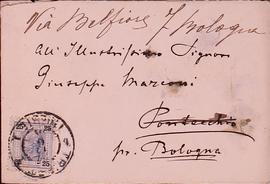 Via Belfiore 7 Bologna
All' Illustrissimo Signor
Giuseppe Marconi
Pontecchio
pr. Bologna
25 25